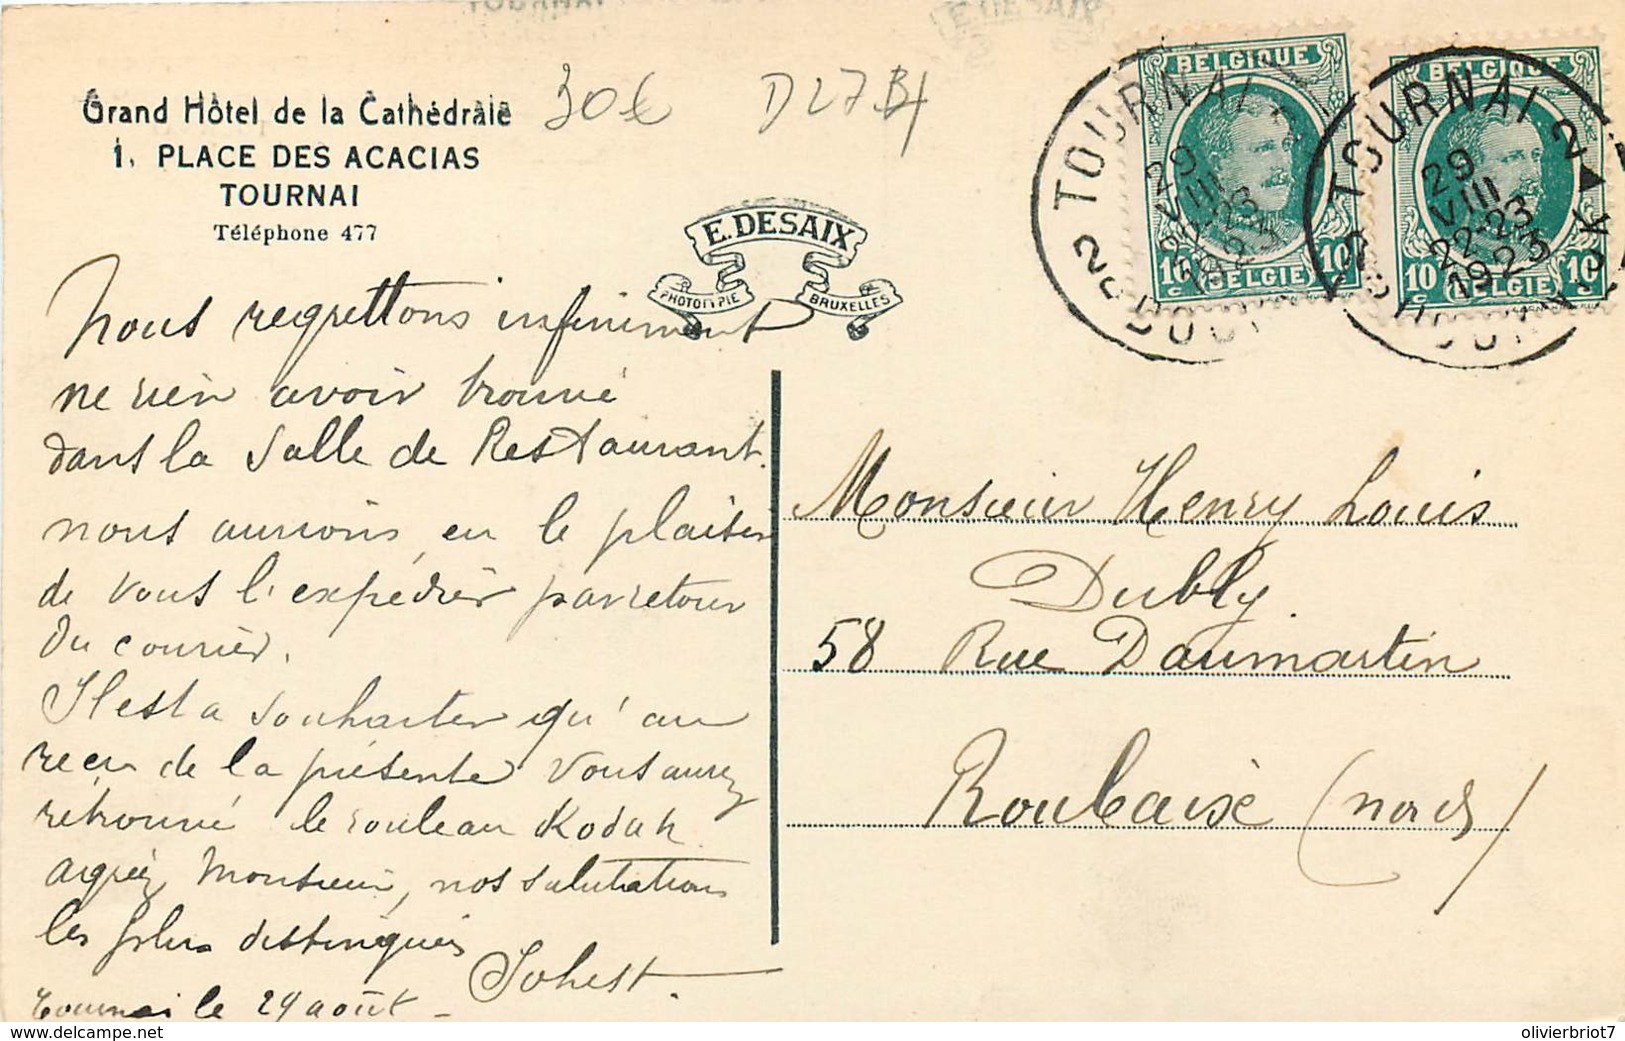 Grand Hôtel de la Cathédrale
1, PLACE DES ACACIAS
TOURNAI
Téléphone 477
30€ D27
E. DESAIX
PHOTOTYPIE BRUXELLES
BELGIQUE
10c (BELGIE) 10c
BELGIQUE
10c (BELGIE) 10c
2 TOURNAI 2
29
VIII
22-23
1923
TOURNAI 2
29
VIII
22-23
1923
nous regrettons infiniment
ne rien avoir trouvé
dans la Salle de Restaurant.
nous aurions eu le plaisir
de vous l'expédier par retour
du courrier.
Il est a souhaiter qu'au
reçu de la présente vous aurez
retrouvé le rouleau Kodak
agréez Monsieur, nos salutations
les plus distinguées
Tournai le 29 août
Monsieur Henry Louis
Dubly
58 Rue Daumartin
Roubaix (nord)
© olivierbriot7